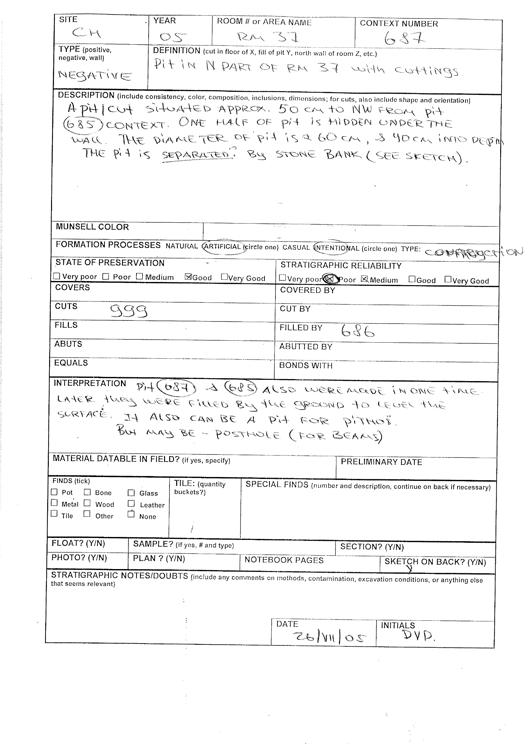 SITE YEAR ROOM # or AREA NAME CONTEXT NUMBER
CH 05 RM 37 687
TYPE (positive, negative, wall) DEFINITION (cut in floor of X, fill of pit Y, north wall of room Z, etc.)
NEGATIVE Pit in N PART OF RM 37 with cuttings
DESCRIPTION (include consistency, color, composition, inclusions, dimensions; for cuts, also include shape and orientation)
A pit/cut SITUATED APPROX. 50 cm to NW FROM pit
(685) CONTEXT. ONE HALF OF pit is HIDDEN UNDER THE
WALL. THE DIAMETER OF pit is a 60 cm, & 40 cm INTO DEPTH
THE pit is SEPARATED? By STONE BANK (SEE SKETCH).
MUNSELL COLOR
FORMATION PROCESSES NATURAL ARTIFICIAL (circle one) CASUAL INTENTIONAL (circle one) TYPE: CONSTRUCTION
STATE OF PRESERVATION STRATIGRAPHIC RELIABILITY
☐ Very poor ☐ Poor ☐ Medium ☒ Good ☐ Very Good ☐ Very poor ☒ Poor ☒ Medium ☐ Good ☐ Very Good
COVERS COVERED BY
CUTS 999 CUT BY
FILLS FILLED BY 686
ABUTS ABUTTED BY
EQUALS BONDS WITH
INTERPRETATION Pit (687) & (685) ALSO WERE MADE IN ONE TIME
LATER THEY WERE FILLED BY THE GROUND TO LEVEL THE
SURFACE. It ALSO CAN BE A pit FOR pithoi.
But MAY BE - POSTHOLE (FOR BEAMS)
MATERIAL DATABLE IN FIELD? (if yes, specify) PRELIMINARY DATE
FINDS (tick) TILE: (quantity buckets?) SPECIAL FINDS (number and description, continue on back if necessary)
☐ Pot ☐ Bone ☐ Glass
☐ Metal ☐ Wood ☐ Leather
☐ Tile ☐ Other ☐ None
FLOAT? (Y/N) SAMPLE? (if yes, # and type) SECTION? (Y/N)
PHOTO? (Y/N) PLAN ? (Y/N) NOTEBOOK PAGES SKETCH ON BACK? (Y/N)
STRATIGRAPHIC NOTES/DOUBTS (include any comments on methods, contamination, excavation conditions, or anything else
that seems relevant)
DATE INITIALS
26/VII/05 DVD.